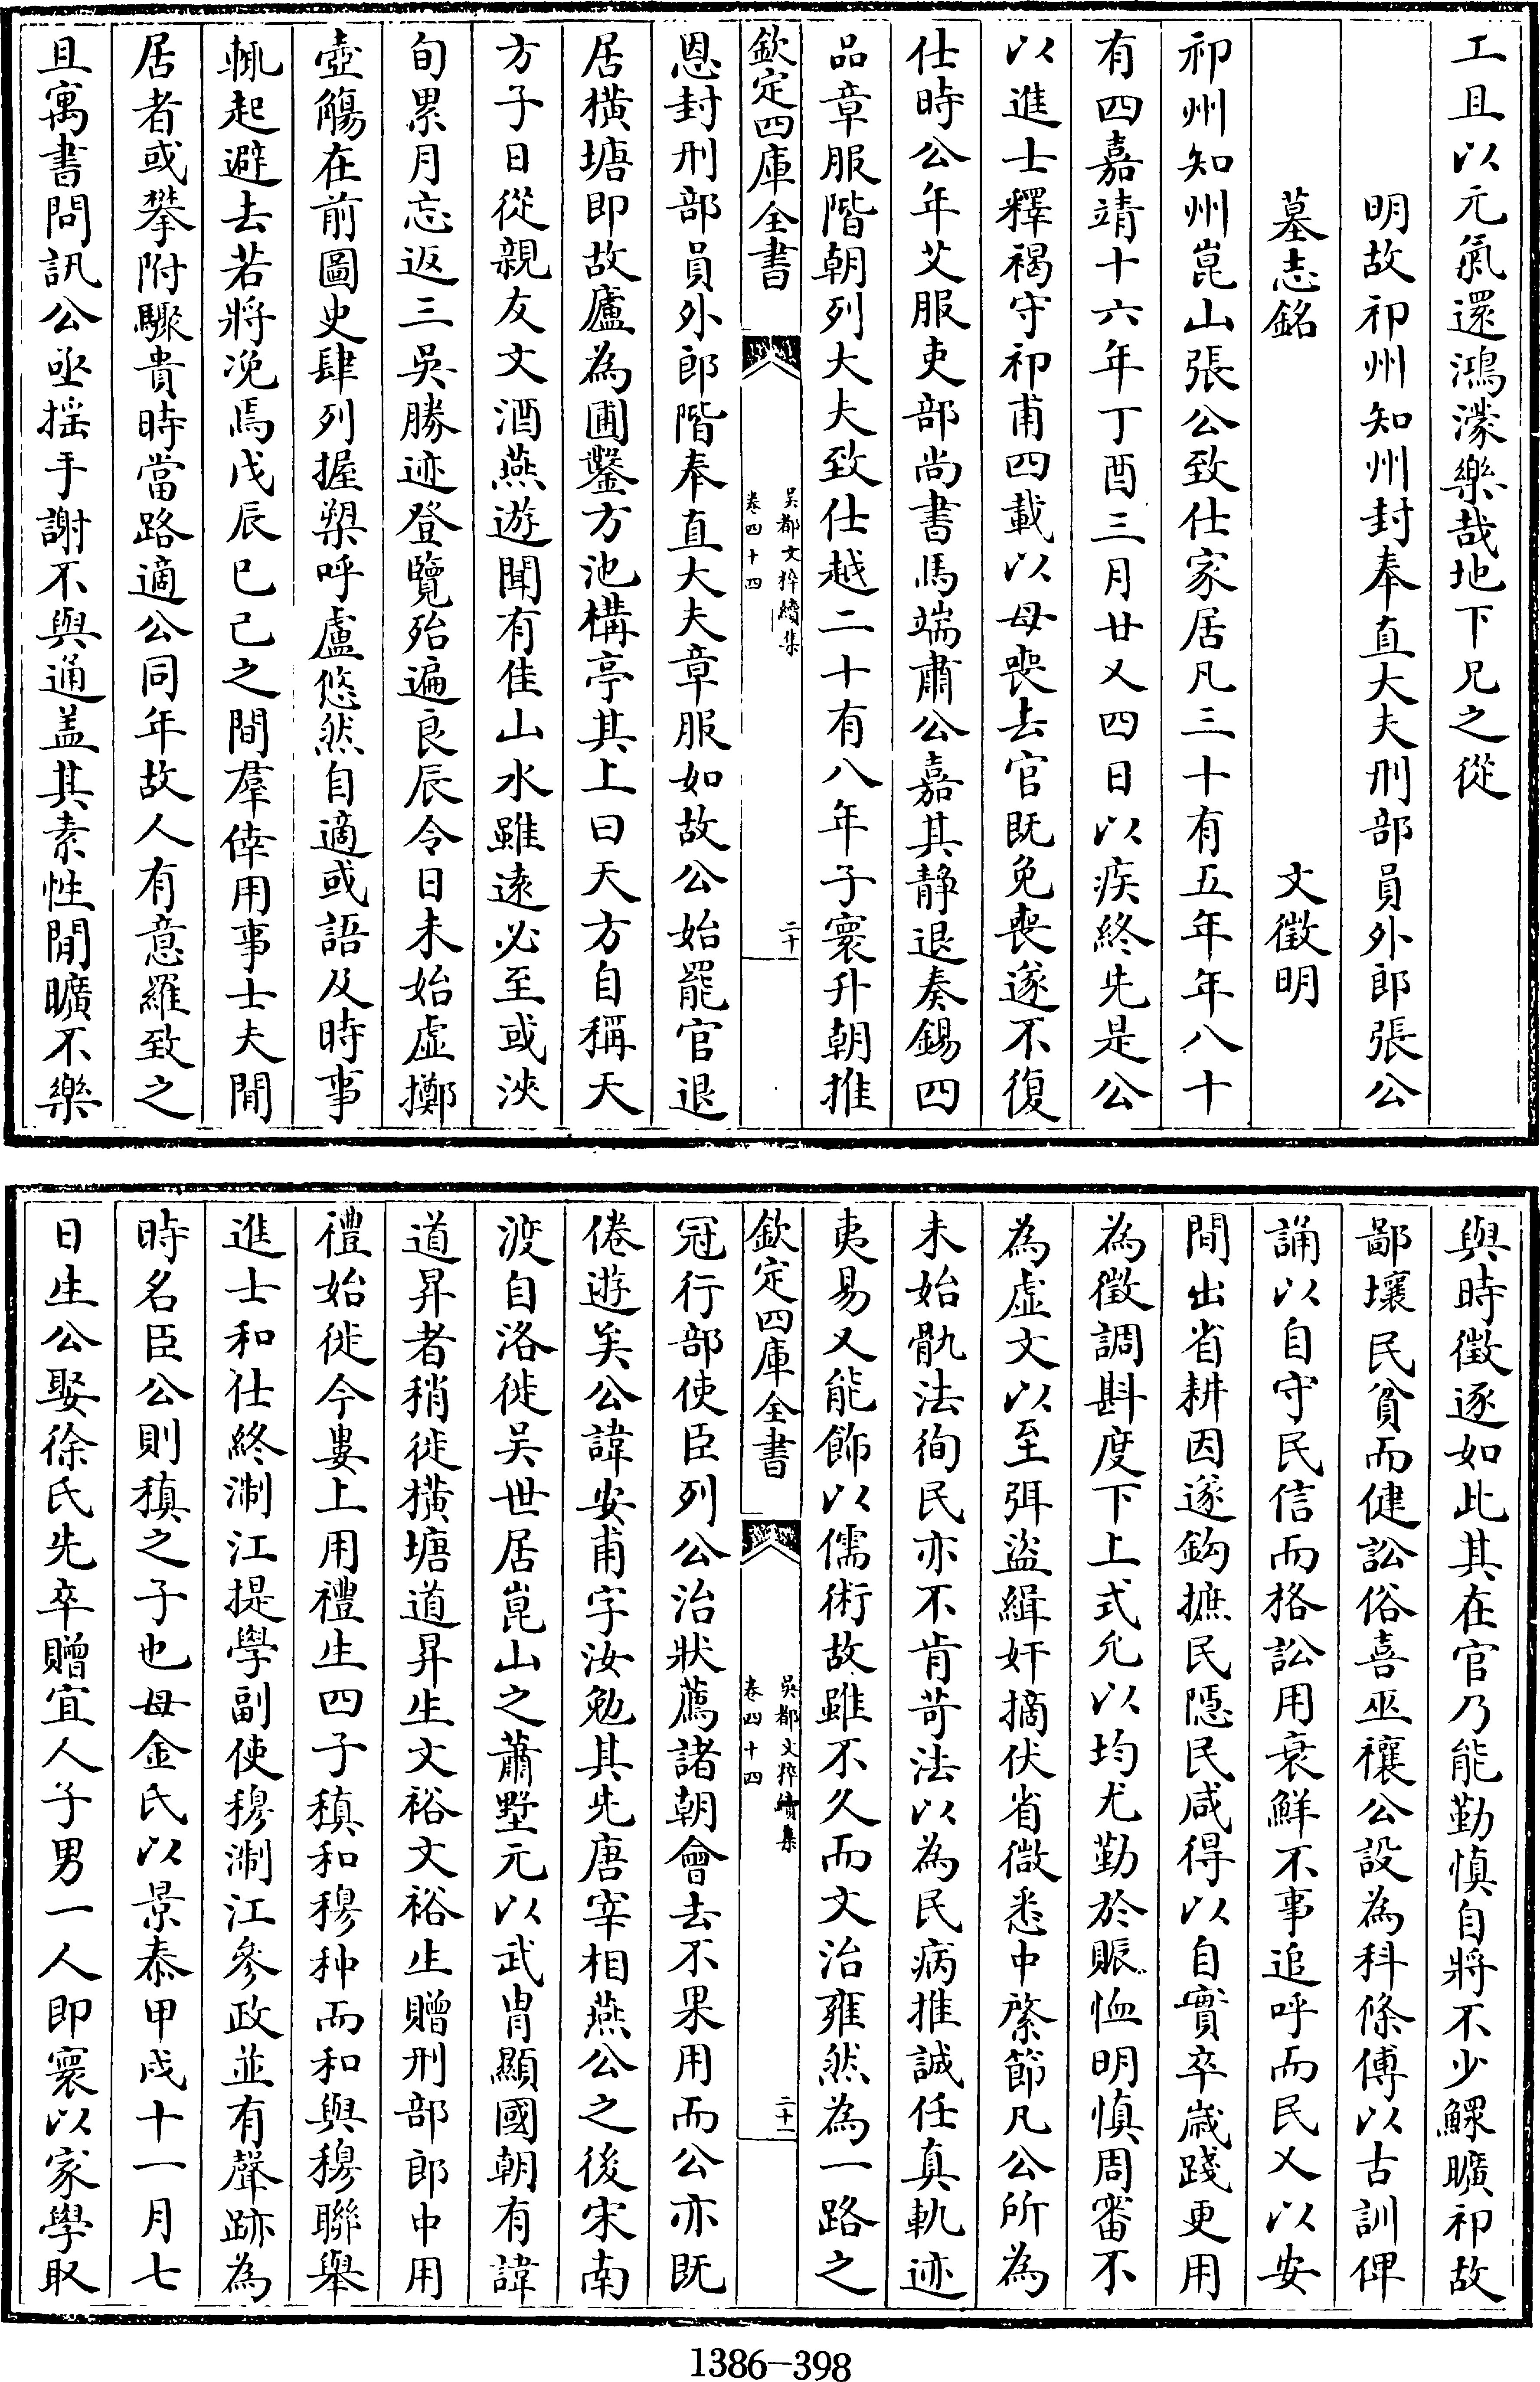 工且以元氣還鴻濛樂哉地下兄之從
明故祁州知州封奉直大夫刑部員外郎張公
墓志銘 文徵明
祁州知州崑山張公致仕家居凡三十有五年年八十
有四嘉靖十六年丁酉三月廿又四日以疾終先是公
以進士釋褐守祁甫四載以母喪去官既免喪遂不復
仕時公年艾服吏部尚書馬端肅公嘉其靜退奏錫四
品章服階朝列大夫致仕越二十有八年子寰升朝推
欽定四庫全書
吳都文粹續集
卷四十四
二十
恩封刑部員外郎階奉直大夫章服如故公始罷官退
居橫塘即故廬為圃鑿方池構亭其上曰天方自稱天
方子日從親友文酒燕遊聞有佳山水雖遠必至或浹
旬累月忘返三吳勝迹登覽殆遍良辰令日未始虛擲
壺觴在前圖史肆列握槊呼盧悠然自適或語及時事
輒起避去若將浼焉戊辰已己之間羣倖用事士夫閒
居者或攀附驟貴時當路適公同年故人有意羅致之
且寓書問訊公亟搖手謝不與通盖其素性閒曠不樂
與時徵逐如此其在官乃能勤慎自將不少鰥曠祁故
鄙壤民貧而健訟俗喜巫禳公設為科條傅以古訓俾
誦以自守民信而格訟用衰鮮不事追呼而民又以安
間出省耕因遂鈎摭民隱民咸得以自實卒歲踐更用
為徵調斟度下上式允以均尤勤於賑恤明慎周審不
為虛文以至弭盜緝奸摘伏省微悉中綮節凡公所為
未始骫法徇民亦不肯苛法以為民病推誠任真軌迹
夷易又能飾以儒術故雖不久而文治雍然為一路之
欽定四庫全書
吳都文粹續集
卷四十四
二十一
冠行部使臣列公治狀薦諸朝會去不果用而公亦既
倦遊矣公諱安甫字汝勉其先唐宰相燕公之後宋南
渡自洛徙吳世居崑山之蕭墅元以武胄顯國朝有諱
道昇者稍徙橫塘道昇生文裕文裕生贈刑部郎中用
禮始徙今婁上用禮生四子稹和穆种而和與穆聯舉
進士和仕終淛江提學副使穆淛江參政並有聲跡為
時名臣公則稹之子也母金氏以景泰甲戌十一月七
日生公娶徐氏先卒贈宜人子男一人即寰以家學取
1386-398